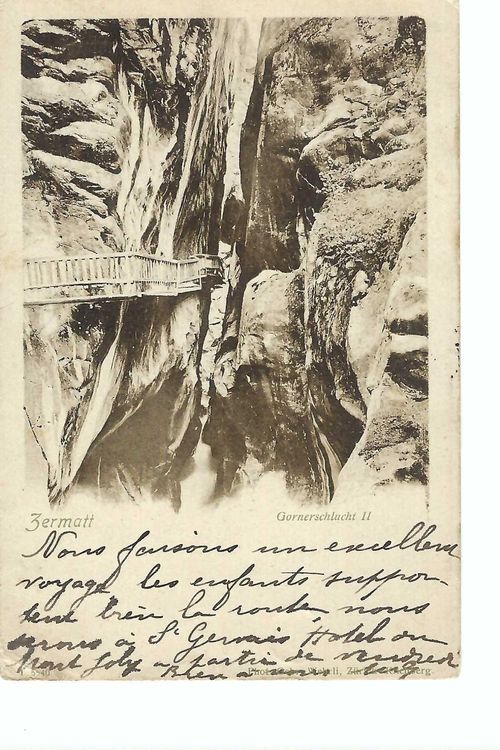 Zermatt
Gornerschlucht II
Nous faisons un excellent
voyage les enfants suppor-
tent bien la route nous
serons à St Gervais Hotel du
Mont Joly a partir de vendredi
Bien